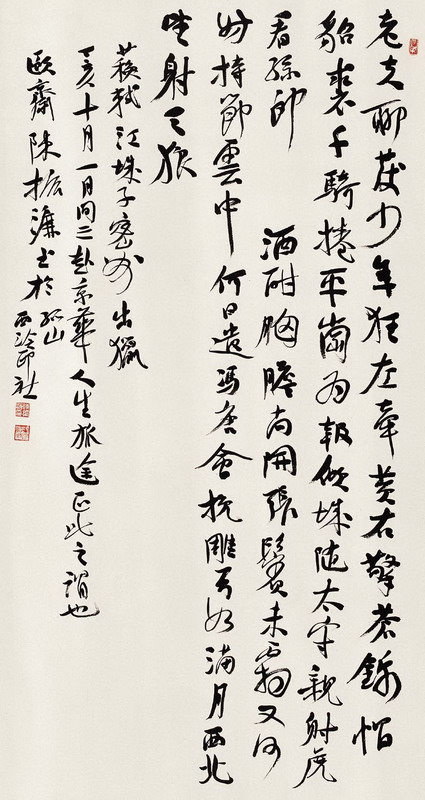 老夫聊發少年狂左牽黄右擎蒼錦帽
貂裘千騎捲平崗為報傾城隨太守親射虎
看孫郎 酒酣胸膽尚開張鬢未霜又何
妨持節雲中何日遣馮唐會挽雕弓如滿月西北
望射天狼
蘇軾江城子密州出獵
亥十月一日間二赴京華人生旅途正此之謂也
頤齋陳振濂書於孤山西泠印社